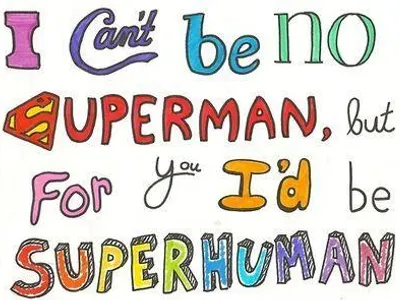 I Can't be no
SUPERMAN, but
For you I'd be
SUPERHUMAN